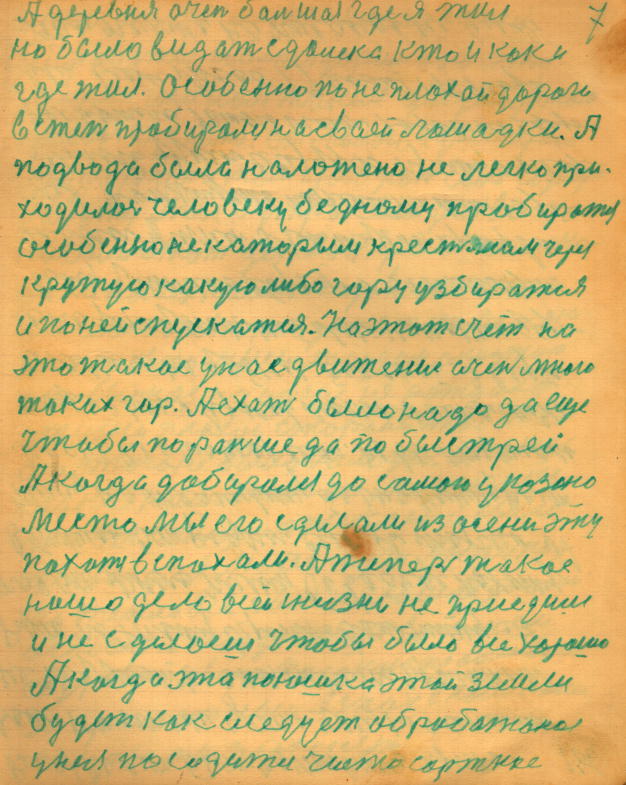 А деревня очен балшая где я жил 7
но было видат сдалека кто и как и
где жил. Особенно по не плохой дороги
в степ пробирали на сваей лашадки. А
подвода была наложено не легко при-
ходилос человеку бедному пробиратся
особенно некаторым крестянам через
крутую какую либо гору узбиратся
и по ней спускатся. На этот счёт на
это такое у нас движение очен много
таких гор. А ехат было надо да еще
чтобы пораньше да по быстрей
А когда добирался до самого указано
место мы его сделали из осени эту
пахать вспахали. А типер такое
нашо дело всей жизни не приедиш
и не сделаеш чтобы было все хорошо
А когда эта пашика этой земли
будет как следует обработано
у нея посадити чисто сортное